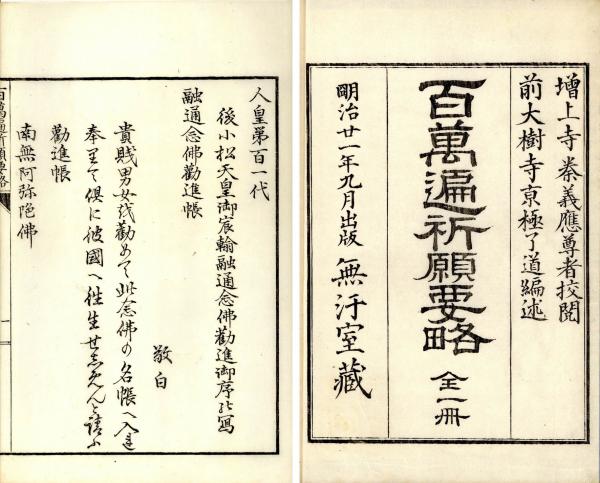 増上寺 秦義應尊者挍閲
前大樹寺 京極了道編述
百萬遍祈願要略 全一冊
明治廿一年九月出版 無汚室藏
人皇第百一代
後小松天皇御宸翰融通念佛勸進御序の写
融通念佛勸進帳
敬白
貴賤男女を勸めて此念佛の名帳へ入
奉りて倶に彼國へ往生せしめんと請ふ
勸進帳
南無阿弥陀佛
百萬遍祈願要略
一